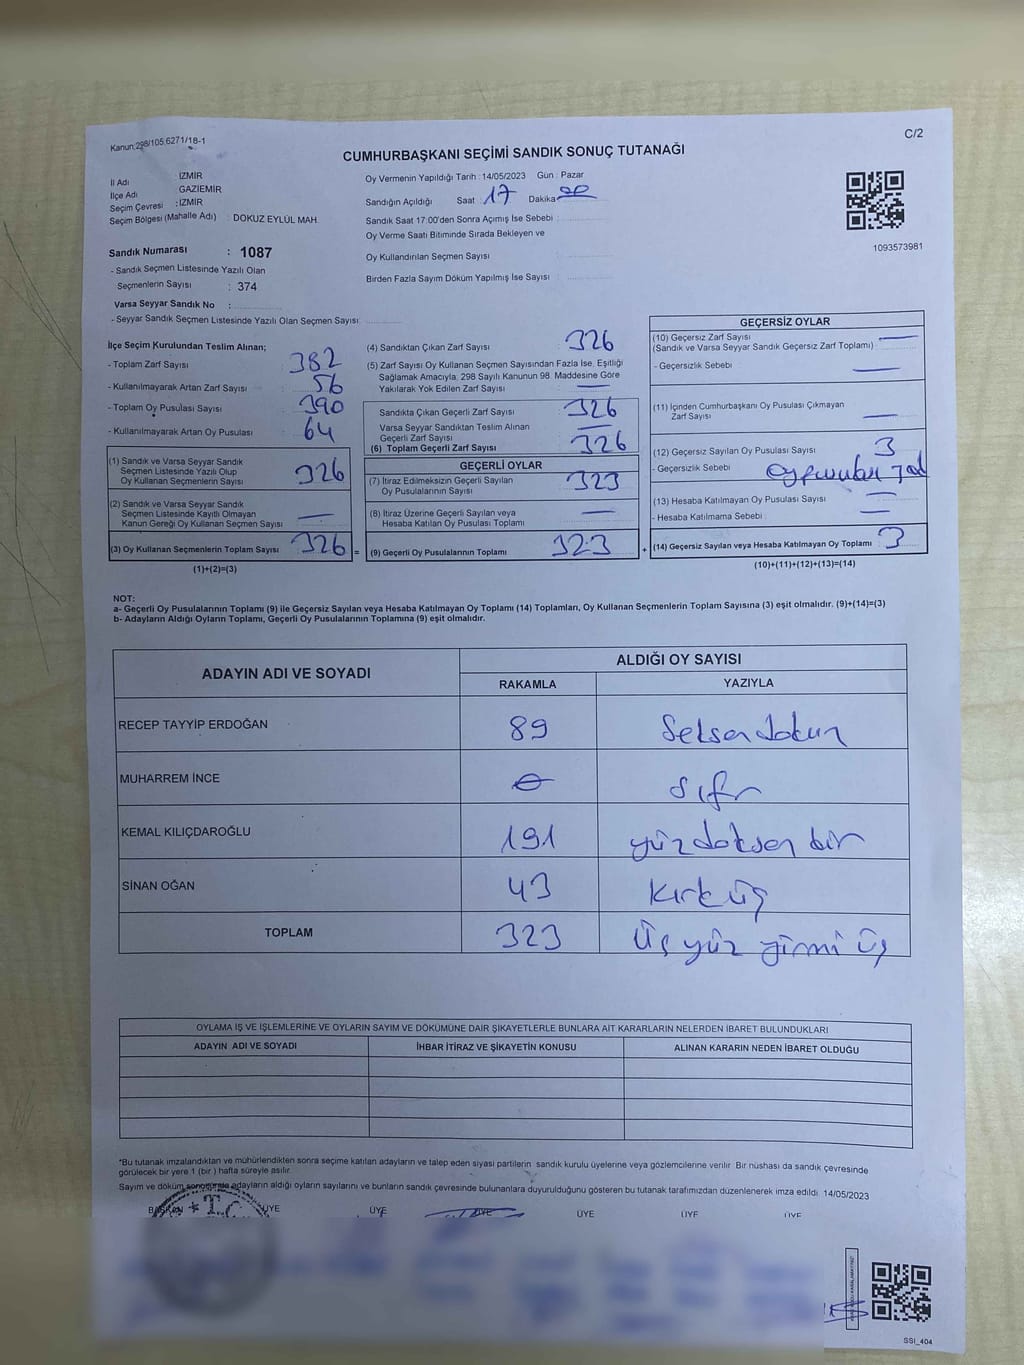 Kanun:298/105.6271/18-1
C/2
CUMHURBAŞKANI SEÇİMİ SANDIK SONUÇ TUTANAĞI
İl Adı : İZMİR
İlçe Adı : GAZİEMİR
Seçim Çevresi : İZMİR
Seçim Bölgesi (Mahalle Adı) : DOKUZ EYLÜL MAH.
Oy Vermenin Yapıldığı Tarih : 14/05/2023 Gün : Pazar
Sandığın Açıldığı Saat : 17 Dakika 00
Sandık Saat 17:00'den Sonra Açımış İse Sebebi :
Oy Verme Saati Bitiminde Sırada Bekleyen ve
Oy Kullandırılan Seçmen Sayısı :
Birden Fazla Sayım Döküm Yapılmış İse Sayısı :
1093573981
Sandık Numarası : 1087
- Sandık Seçmen Listesinde Yazılı Olan
Seçmenlerin Sayısı : 374
Varsa Seyyar Sandık No :
- Seyyar Sandık Seçmen Listesinde Yazılı Olan Seçmen Sayısı:
İlçe Seçim Kurulundan Teslim Alınan;
- Toplam Zarf Sayısı : 382
- Kullanılmayarak Artan Zarf Sayısı : 56
- Toplam Oy Pusulası Sayısı : 390
- Kullanılmayarak Artan Oy Pusulası : 64
(1) Sandık ve Varsa Seyyar Sandık
Seçmen Listesinde Yazılı Olup
Oy Kullanan Seçmenlerin Sayısı : 326
(2) Sandık ve Varsa Seyyar Sandık
Seçmen Listesinde Kayıtlı Olmayan
Kanun Gereği Oy Kullanan Seçmen Sayısı : —
(3) Oy Kullanan Seçmenlerin Toplam Sayısı : 326 =
(1)+(2)=(3)
(4) Sandıktan Çıkan Zarf Sayısı : 326
(5) Zarf Sayısı Oy Kullanan Seçmen Sayısından Fazla İse, Eşitliği
Sağlamak Amacıyla; 298 Sayılı Kanunun 98. Maddesine Göre
Yakılarak Yok Edilen Zarf Sayısı : —
Sandıkta Çıkan Geçerli Zarf Sayısı : 326
Varsa Seyyar Sandıktan Teslim Alınan
Geçerli Zarf Sayısı : —
(6) Toplam Geçerli Zarf Sayısı : 326
GEÇERLİ OYLAR
(7) İtiraz Edilmeksizin Geçerli Sayılan
Oy Pusulalarının Sayısı : 323
(8) İtiraz Üzerine Geçerli Sayılan veya
Hesaba Katılan Oy Pusulası Toplamı : —
(9) Geçerli Oy Pusulalarının Toplamı : 323 +
GEÇERSİZ OYLAR
(10) Geçersiz Zarf Sayısı : —
(Sandık ve Varsa Seyyar Sandık Geçersiz Zarf Toplamı)
- Geçersizlik Sebebi : —
(11) İçinden Cumhurbaşkanı Oy Pusulası Çıkmayan
Zarf Sayısı : —
(12) Geçersiz Sayılan Oy Pusulası Sayısı : 3
- Geçersizlik Sebebi :
(13) Hesaba Katılmayan Oy Pusulası Sayısı : —
- Hesaba Katılmama Sebebi : —
(14) Geçersiz Sayılan veya Hesaba Katılmayan Oy Toplamı : 3
(10)+(11)+(12)+(13)=(14)
NOT:
a- Geçerli Oy Pusulalarının Toplamı (9) ile Geçersiz Sayılan veya Hesaba Katılmayan Oy Toplamı (14) Toplamları, Oy Kullanan Seçmenlerin Toplam Sayısına (3) eşit olmalıdır. (9)+(14)=(3)
b- Adayların Aldığı Oyların Toplamı, Geçerli Oy Pusulalarının Toplamına (9) eşit olmalıdır.
ADAYIN ADI VE SOYADI ALDIĞI OY SAYISI
RAKAMLA YAZIYLA
RECEP TAYYİP ERDOĞAN 89 Seksendokuz
MUHARREM İNCE 0 sıfır
KEMAL KILIÇDAROĞLU 191 yüzdoksan bir
SİNAN OĞAN 43 Kırküç
TOPLAM 323 Üç yüz yirmi üç
OYLAMA İŞ VE İŞLEMLERİNE VE OYLARIN SAYIM VE DÖKÜMÜNE DAİR ŞİKAYETLERLE BUNLARA AİT KARARLARIN NELERDEN İBARET BULUNDUKLARI
ADAYIN ADI VE SOYADI İHBAR İTİRAZ VE ŞİKAYETİN KONUSU ALINAN KARARIN NEDEN İBARET OLDUĞU
*Bu tutanak imzalandıktan ve mühürlendikten sonra seçime katılan adayların ve talep eden siyasi partilerin sandık kurulu üyelerine veya gözlemcilerine verilir. Bir nüshası da sandık çevresinde
görülecek bir yere 1 (bir) hafta süreyle asılır.
Sayım ve döküm sonucunda adayların aldığı oyların sayılarını ve bunların sandık çevresinde bulunanlara duyurulduğunu gösteren bu tutanak tarafımızdan düzenlenerek imza edildi. 14/05/2023
BAŞKAN ÜYE ÜYE ÜYE ÜYE ÜYE ÜYE
* T.C.
SSİ_404